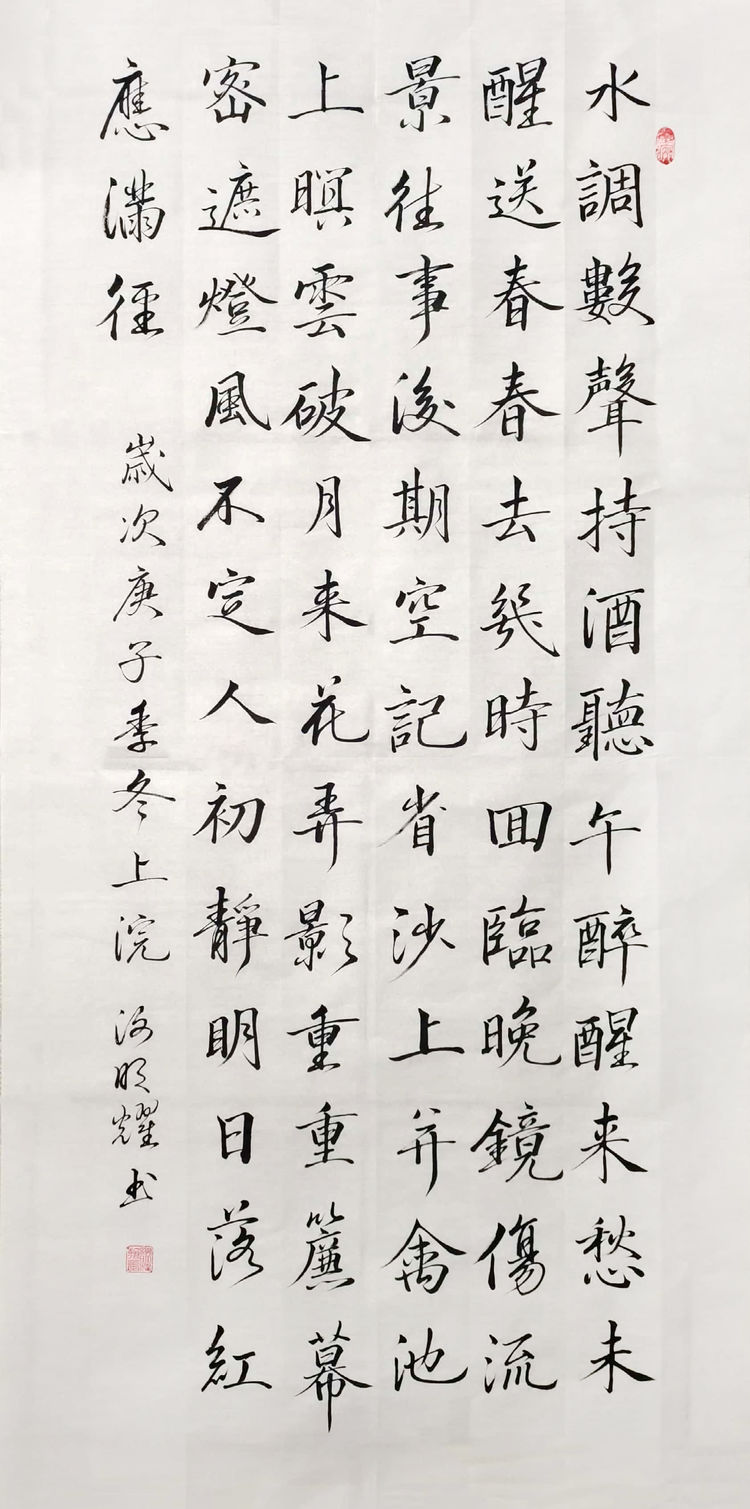 水調數聲持酒聽午醉醒来愁未
醒送春春去幾時囬臨晚鏡傷流
景往事後期空記省沙上并禽池
上暝雲破月来花弄影重重簾幕
密遮燈風不定人初靜明日落紅
應滿徑
歲次庚子季冬上浣 明耀书